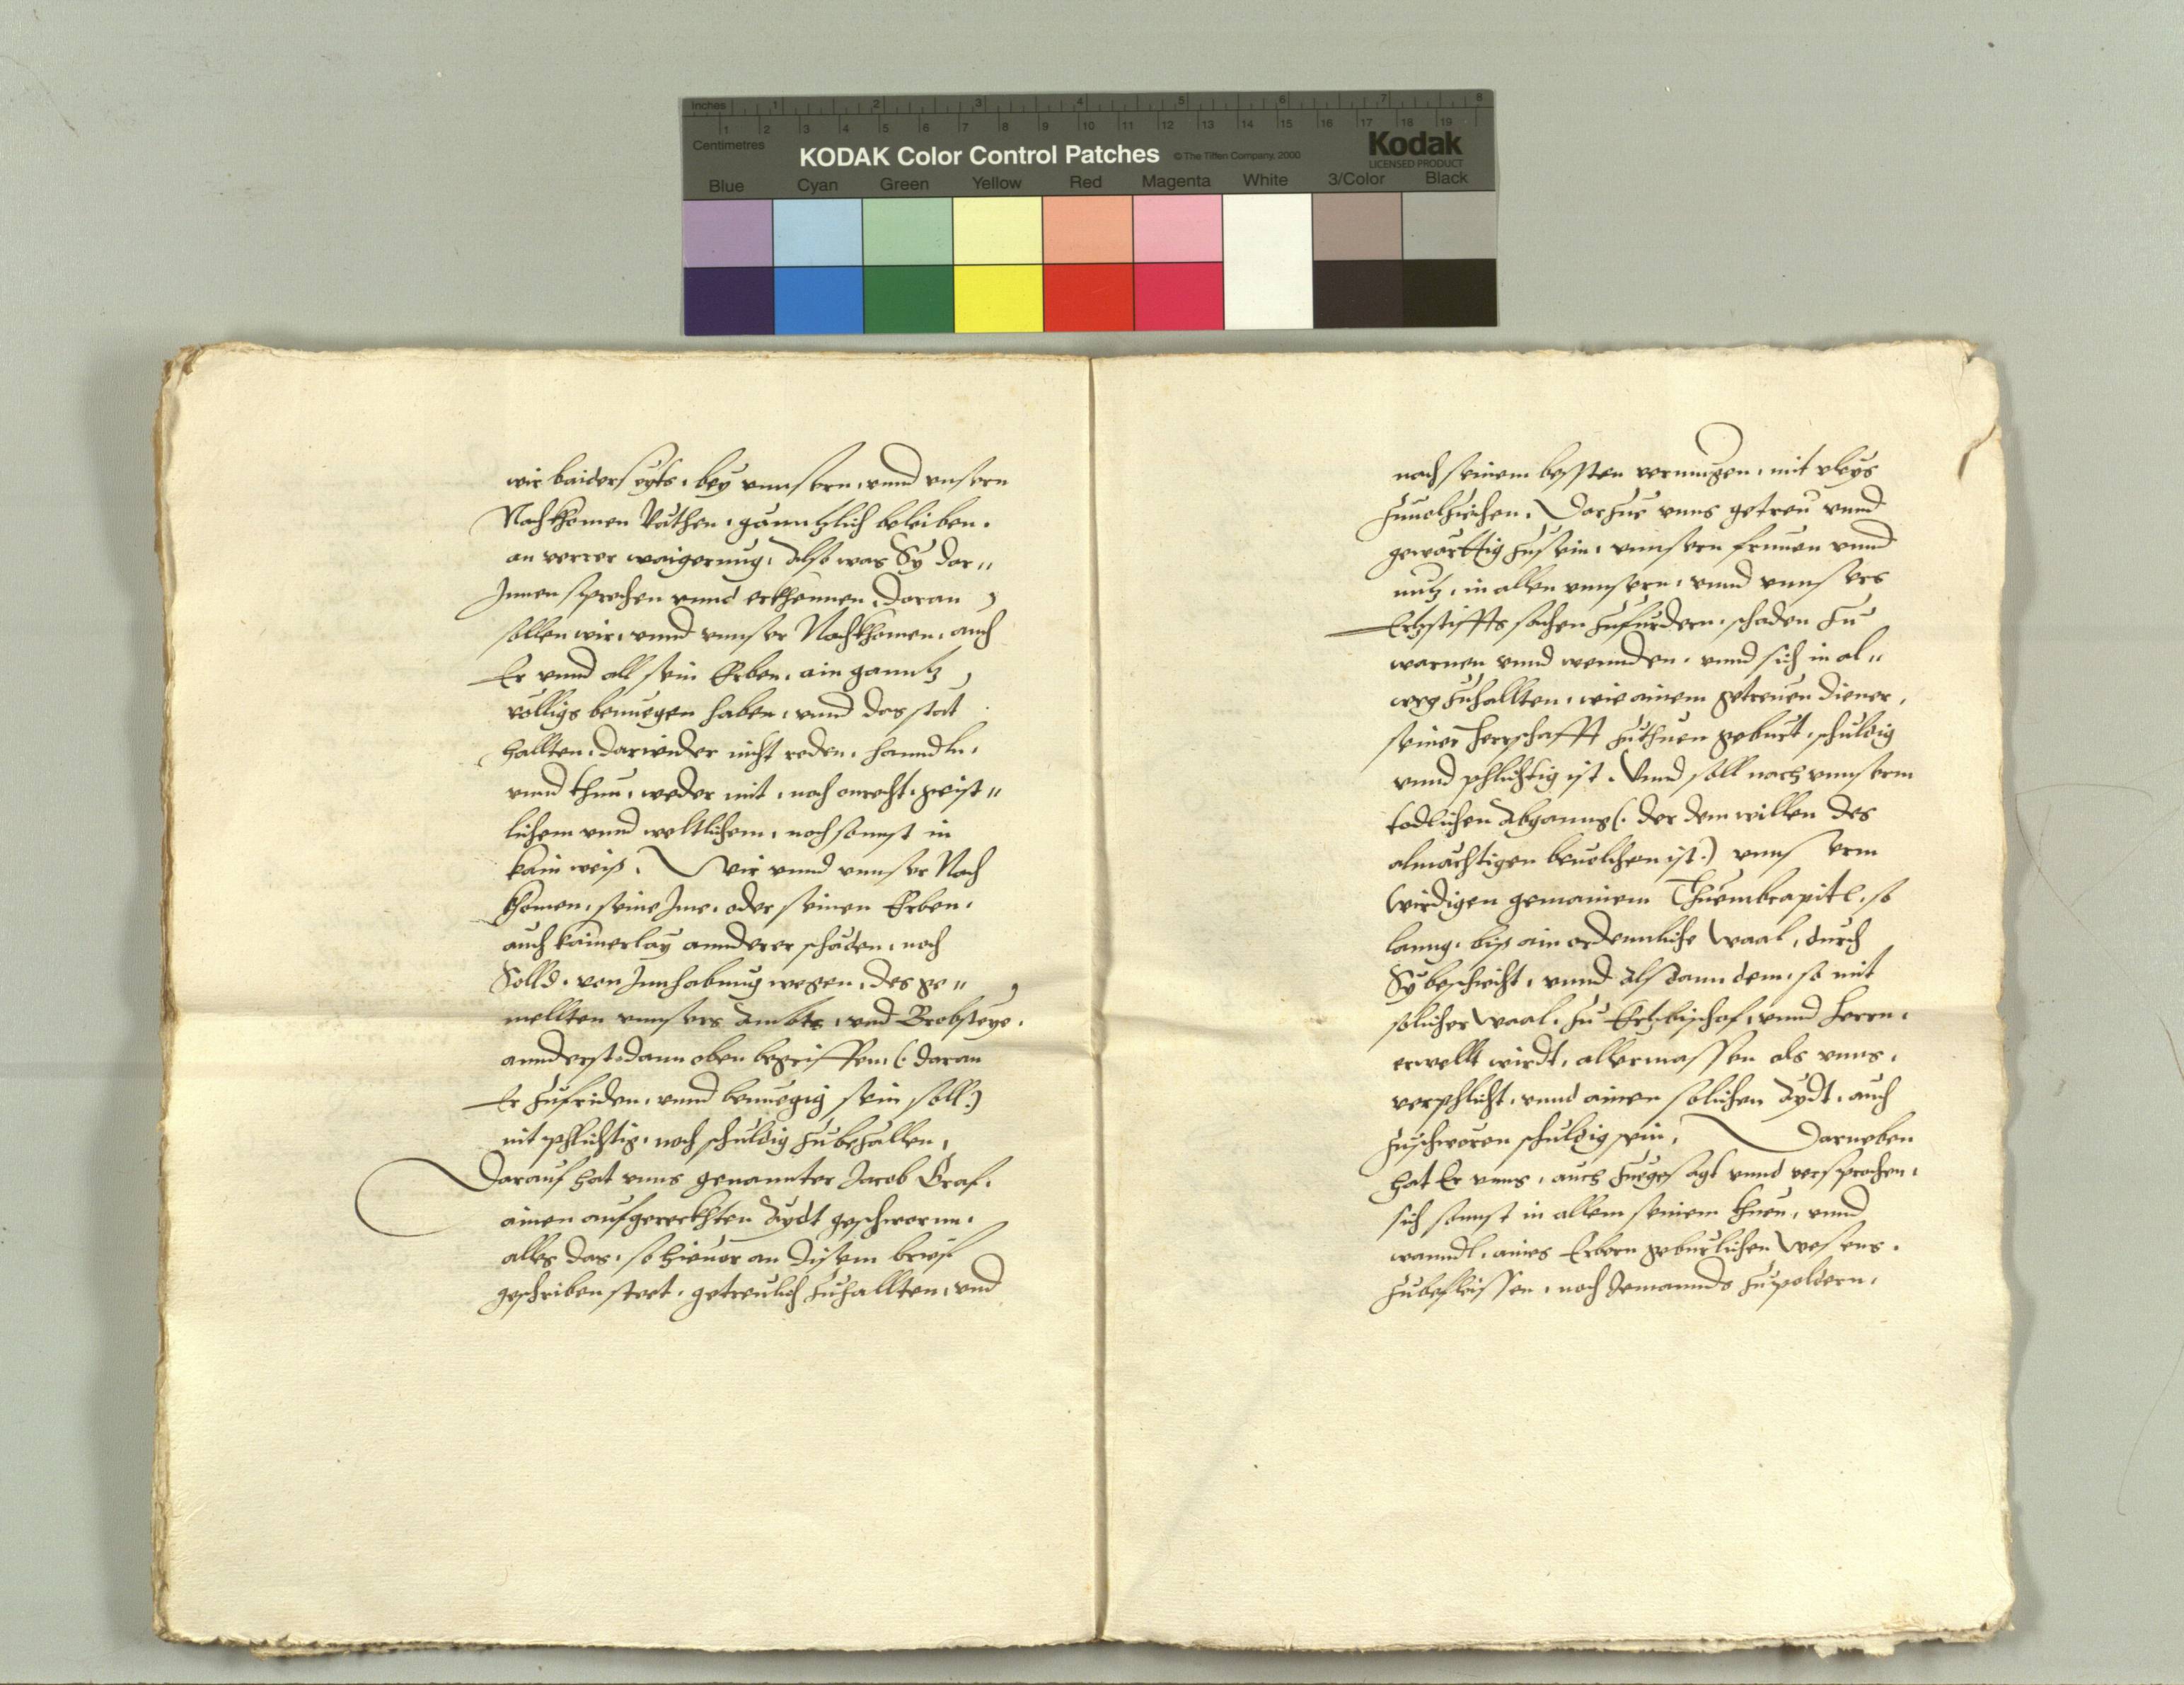 Inches 1 2 3 4 5 6 7 8
1 2 3 4 5 6 7 8 9 10 11 12 13 14 15 16 17 18 19
Centimetres
KODAK Color Control Patches © The Tiffen Company, 2000
Kodak
LICENSED PRODUCT
Blue Cyan Green Yellow Red Magenta White 3/Color Black
wir baiderseyts, bey vnnsern, vnnd vnsern
Nachkhomen Räthen, gänntzlich beleiben.
an verrer waigerung, Also was Sy dar„
Innen sprechen vnnd erkhennen, daran
sollen wir, vnnd vnnser Nachkhomen, auch
Er vnnd all sein Erben, ain ganntz
völligs benuegen haben, vnnd das stät
hallten, darwider nicht reden, hanndln,
vnnd thun, weder mit, noch on recht, geist„
lichem vnnd weltlichem, noch sonnst in
kain weiß. Wir vnnd vnnser Nach
khomen, sein Ime, oder seinen Erben,
auch kainerlay annderer schäden, noch
Solld, von Innhabung wegen, des ge„
mellten vnnsers Ambts, vnd Brobsteye,
annderst dann oben begriffen, (: daran
Er zufriden, vnnd benuegig sein soll:)
nit phlichtig, noch schuldig zubezallen,
Darauf hat vnns genannter Jacob Graf,
ainen aufgereckhten Aydt geschworn,
alles das, so hieuor an disem brief
geschriben steet, getreulich zuhallten, vnd
nach seinem bessten vermugen, mit vleys
zuuolziehen. Darzue vnns getreu vnnd
gewärttig zusein, vnnsern frumen vnnd
nutz, in allen vnnsern, vnnd vnnsers
Ertzstiffts sachen zufürdern, schaden zu
warnen vnnd wennden, vnnd sich in al„
weg zuhallten, wie ainem getreuen diener,
seiner Herrschafft zuthuen geburt, schuldig
vnnd phlichtig ist. Vnnd soll nach vnnserm
todlichen Abganng (: der dem willen des
almächtigen beuolchen ist:) vnnserm
wirdigen gemainem Thuembcapitl, so
lanng, biß ain ordennliche Waal, durch
Sy beschicht, vnnd alsdann dem, so mit
solicher Waal, zu Ertzbischof, vnnd Herrn,
erwellt wirdt, allermassen als vnns,
verphlicht, vnnd ainen solichen Aydt, auch
zuschwören schuldig sein, Darneben
hat Er vnns, auch zuegesagt vnnd versprochen,
sich sonnst in allem seinem thuen, vnnd
wanndl, aines Erbern geburlichen Wesens,
zubefleissen, noch Iemannds zupoldern,